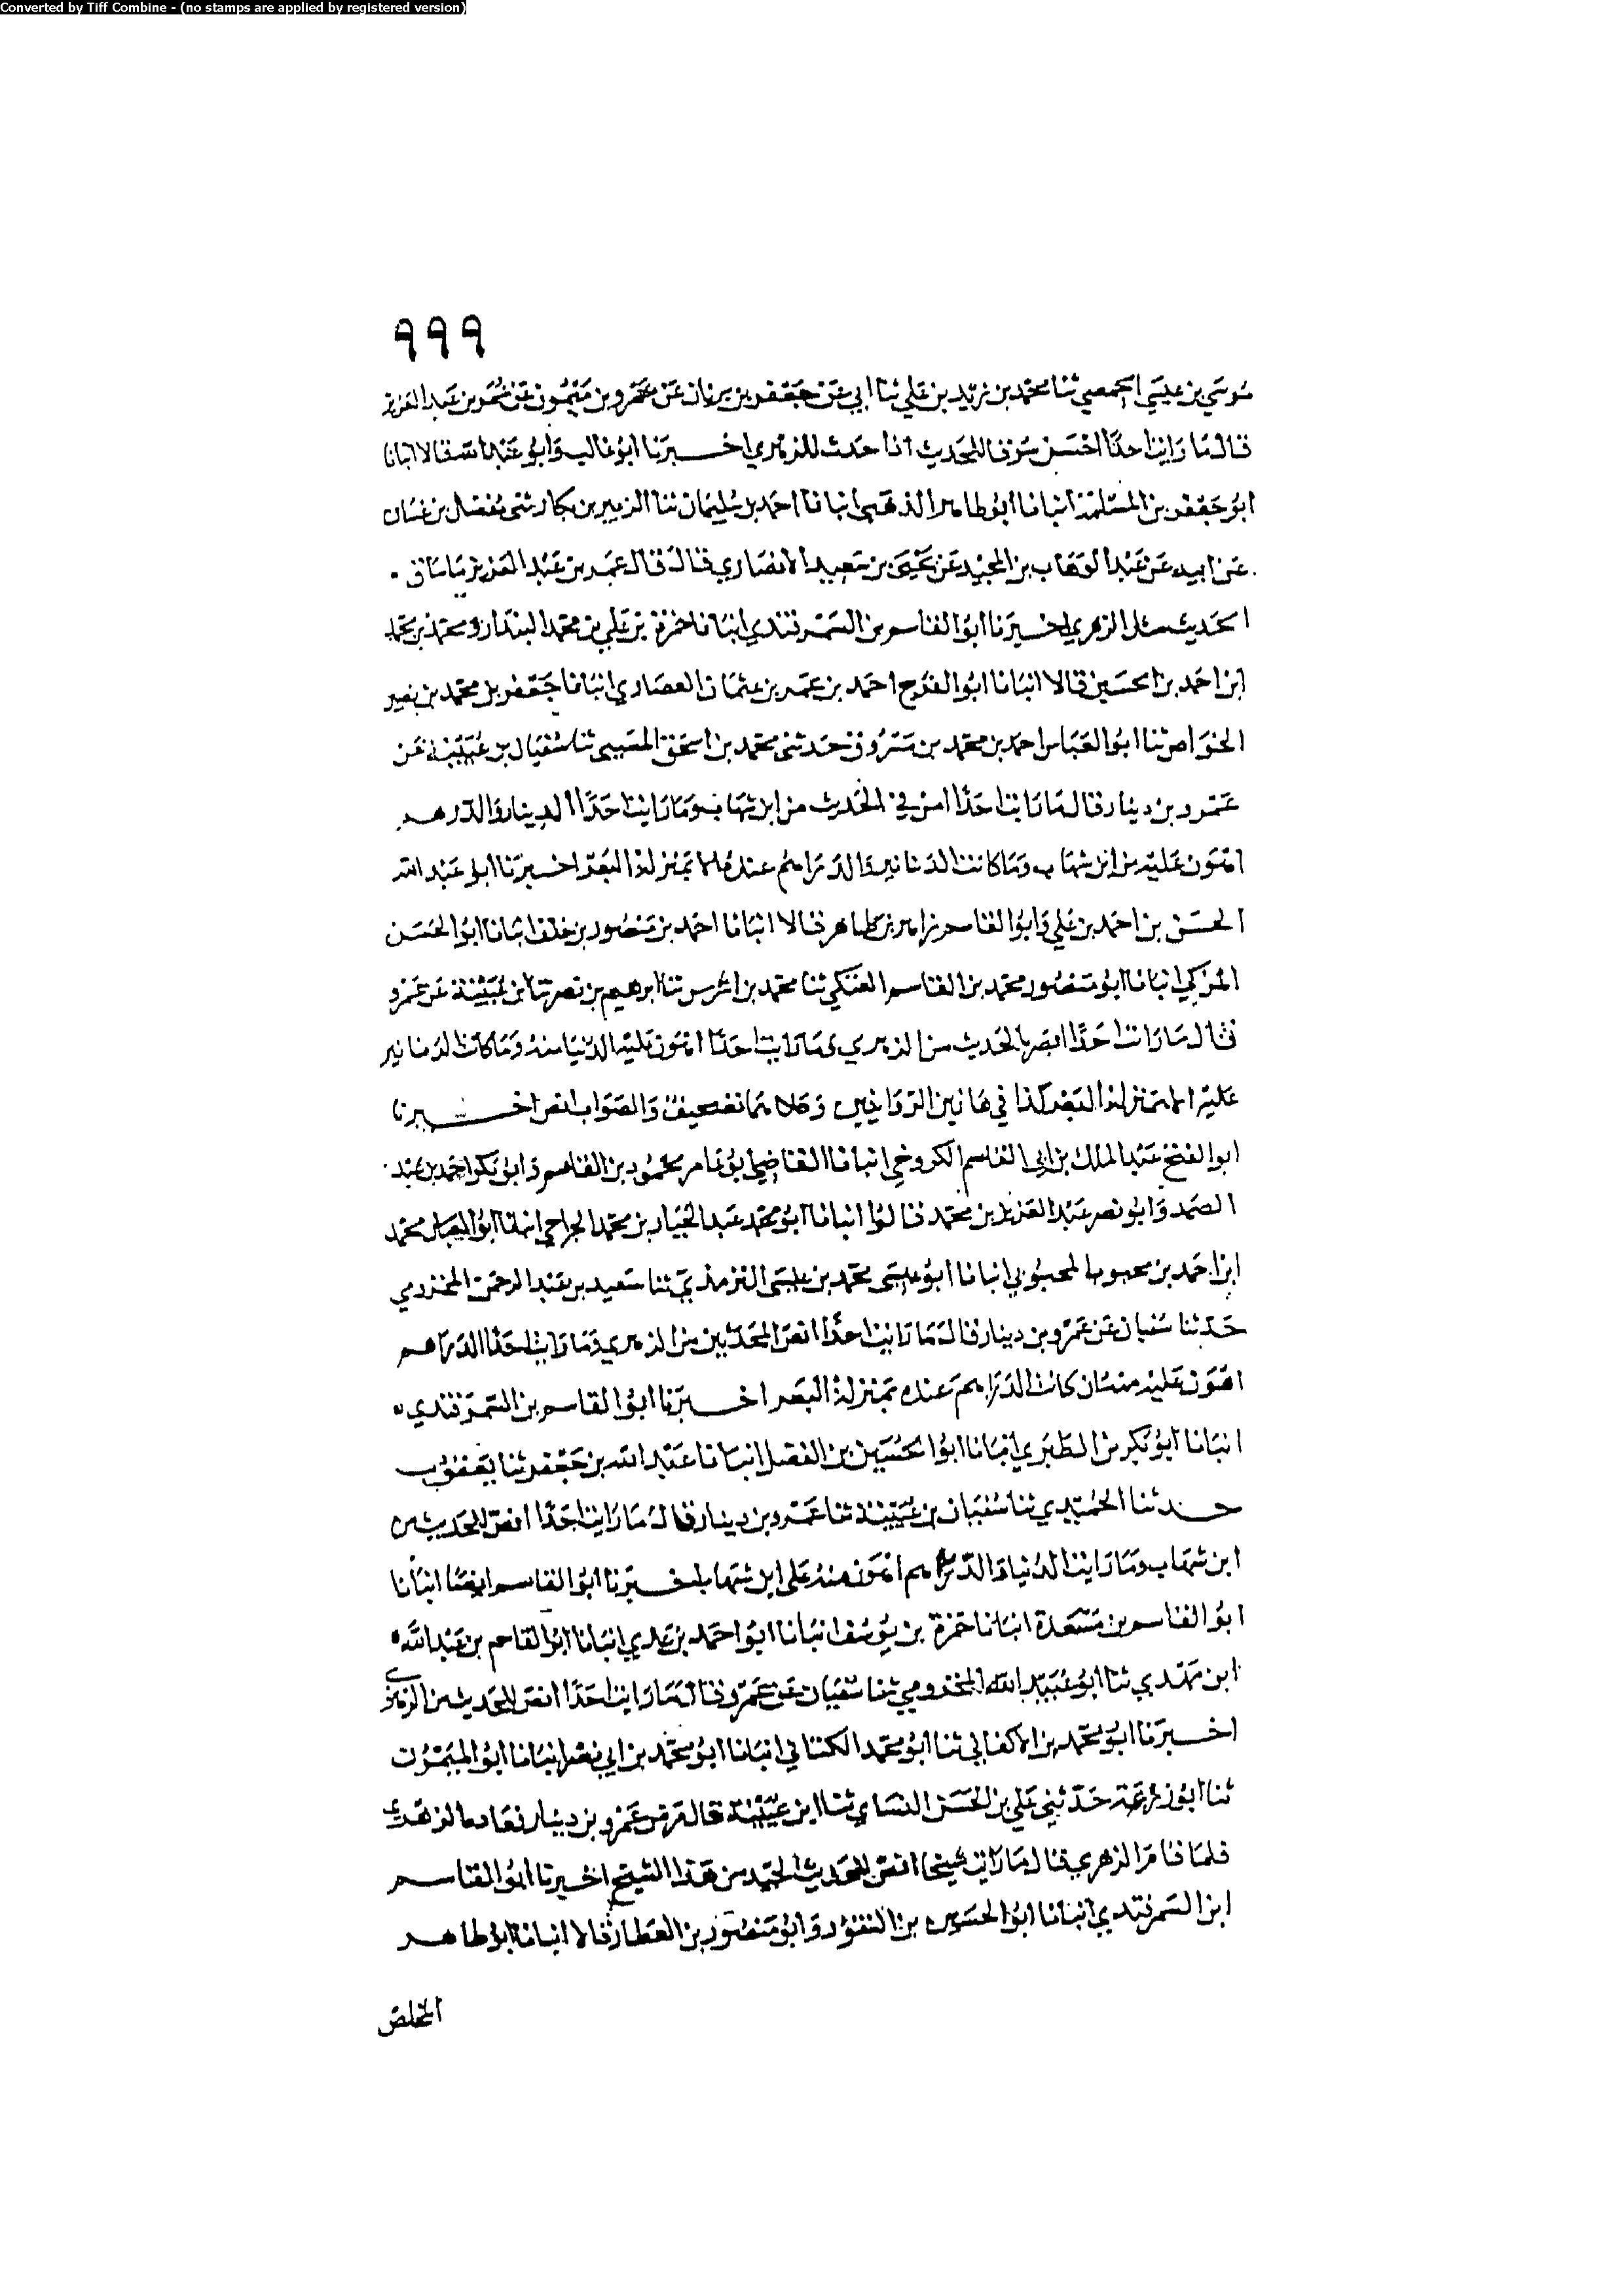 Converted by Tiff Combine - (no stamps are applied by registered version)
٩٩٩
موسي بن عيسي الحمصي ثنا محمد بن يزيد بن علي ثنا ابي عن جعفر بن برقان عن عمرو بن ميمون عن عمر بن عبد العزيز
قال ما رايت احدا احسن سوقا للحديث اذا حدث للزهري اخبرنا ابو غالب وابو عبد الله قالا انبانا
ابو جعفر بن المسلمة انبانا ابو طاهر الذهبي انبانا احمد بن سليمان ثنا الزبير بن بكار ثني مفضل بن غسان
عن ابيه عن عبد الوهاب بن المجيد عن يحيى بن سعيد الانصاري قال قال عمر بن عبد العزيز ما ساق
الحديث مثل الزهري اخبرنا ابو القاسم بن السمرقندي انبانا حمزة بن علي بن محمد البندار ومحمد بن محمد
ابن احمد بن الحسين قالا انبانا ابو الفرج احمد بن عمر بن عثمان العصاري انبانا جعفر بن محمد بن نصير
الخواص ثنا ابو العباس احمد بن محمد بن مسروق حدثني محمد بن اسحق المسيبي ثنا سفيان بن عيينة عن
عمرو بن دينار قال ما رايت احدا امن في الحدث من ابن شهاب وما رايت احدا الدينار والدرهم
اهون عليه من ابن شهاب وما كانت الدنانير والدراهم عنده الا بمنزلة البعر اخبرنا ابو عبد الله
الحسين بن احمد بن علي وابو القاسم زاهر بن طاهر قالا انبانا احمد بن منصور بن خلف انبانا ابو الحسن
المزكي انبانا ابو منصور محمد بن القاسم العتكي ثنا محمد بن اشرس ثنا ابرهيم بن نصر ثنا ابن عيينة عن عمرو
قال ما رايت احدا ابصر بالحديث من الزهري وما رايت احدا اهون عليه الدنيا منه وما كانت الدنانير
عليه الا بمنزلة البعر كذا في هاتين الروايتين وكلاهما تصحيف والصواب انص اخبرنا
ابو الفتح عبد الملك بن ابي القاسم الكروخي انبانا القاضي ابو عامر محمود بن القاسم وابو بكر احمد بن عبد
الصمد وابو نصر عبد العزيز بن محمد قالوا انبانا ابو محمد عبد الجبار بن محمد الجراحي انبانا ابو العباس محمد
ابن احمد بن محبوب المحبوبي انبانا ابو عيسى محمد بن عيسى الترمذي ثنا سعيد بن عبد الرحمن المخزومي
حدثنا سفيان عن عمرو بن دينار قال ما رايت احدا انص الحديث من الزهري وما رايت احدا الدراهم
اهون عليه منه ان كانت الدراهم عنده بمنزلة البعر اخبرنا ابو القاسم بن السمرقندي
انبانا ابو بكر بن الطبري انبانا ابو الحسين بن الفضل انبانا عبد الله بن جعفر ثنا يعقوب
حدثنا الحميدي ثنا سفيان بن عيينة ثنا عمرو بن دينار قال ما رايت احدا انص للحديث من
ابن شهاب وما رايت الدنيا والدراهم اهون منه على ابن شهاب اخبرنا ابو القاسم ايضا انبانا
ابو القاسم بن مسعدة انبانا حمزة بن يوسف انبانا ابو احمد بن عدي انبانا ابو القاسم بن عبد الله
ابن مهدي ثنا ابو عبيد الله المخزومي ثنا سفيان عن عمرو قال ما رايت احدا انص للحديث من الزهري
اخبرنا ابو محمد بن الاكفاني ثنا ابو محمد الكتاني انبانا ابو محمد بن ابي نصر انبانا ابو الميمون
ثنا ابو زرعة حدثني علي بن الحسن النساي ثنا ابن عيينة قال مرض عمرو بن دينار فعاده الزهري
فلما قام الزهري قال ما رايت شيخا انص للحديث الجيد من هذا الشيخ اخبرنا ابو القاسم
ابن السمرقندي انبانا ابو الحسين بن النقور وابو منصور بن العطار قالا انبانا ابو طاهر
المخلص